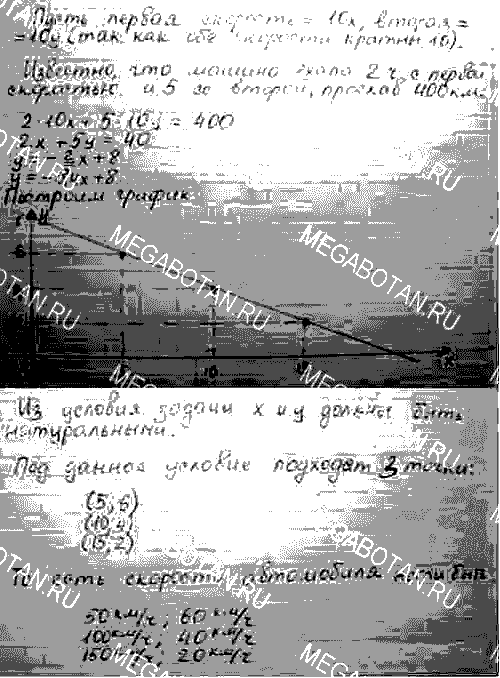 Пусть первая скорость = 10x, вторая =
= 10y (так как обе скорости кратны 10).
Известно, что машина ехала 2 ч с первой
скоростью и 5 со второй, проехав 400 км.
2·10x + 5·10y = 400
2x + 5y = 40
y = -x + 8
y = x + 8
Построим график.
y
MEGABOTAN.RU
MEGABOTAN.RU
10
x
Из условия задачи x и y должны быть
натуральными.
Под данное условие подходят 3 точки:
(5; 6)
(10; 4)
(15; 2)
То есть скорости автомобиля могли быть
50 км/ч; 60 км/ч
100 км/ч; 40 км/ч
150 км/ч; 20 км/ч
MEGABOTAN.RU
MEGABOTAN.RU